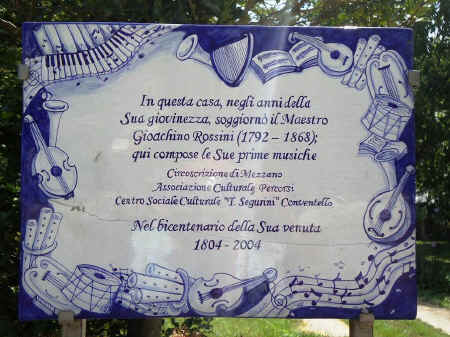 In questa casa, negli anni della
Sua giovinezza, soggiornò il Maestro
Gioachino Rossini (1792 - 1868);
qui compose le Sue prime musiche
Circoscrizione di Mezzano
Associazione Culturale Percorsi
Centro Sociale Culturale "T. Segurini" Conventello
Nel bicentenario della Sua venuta
1804 - 2004